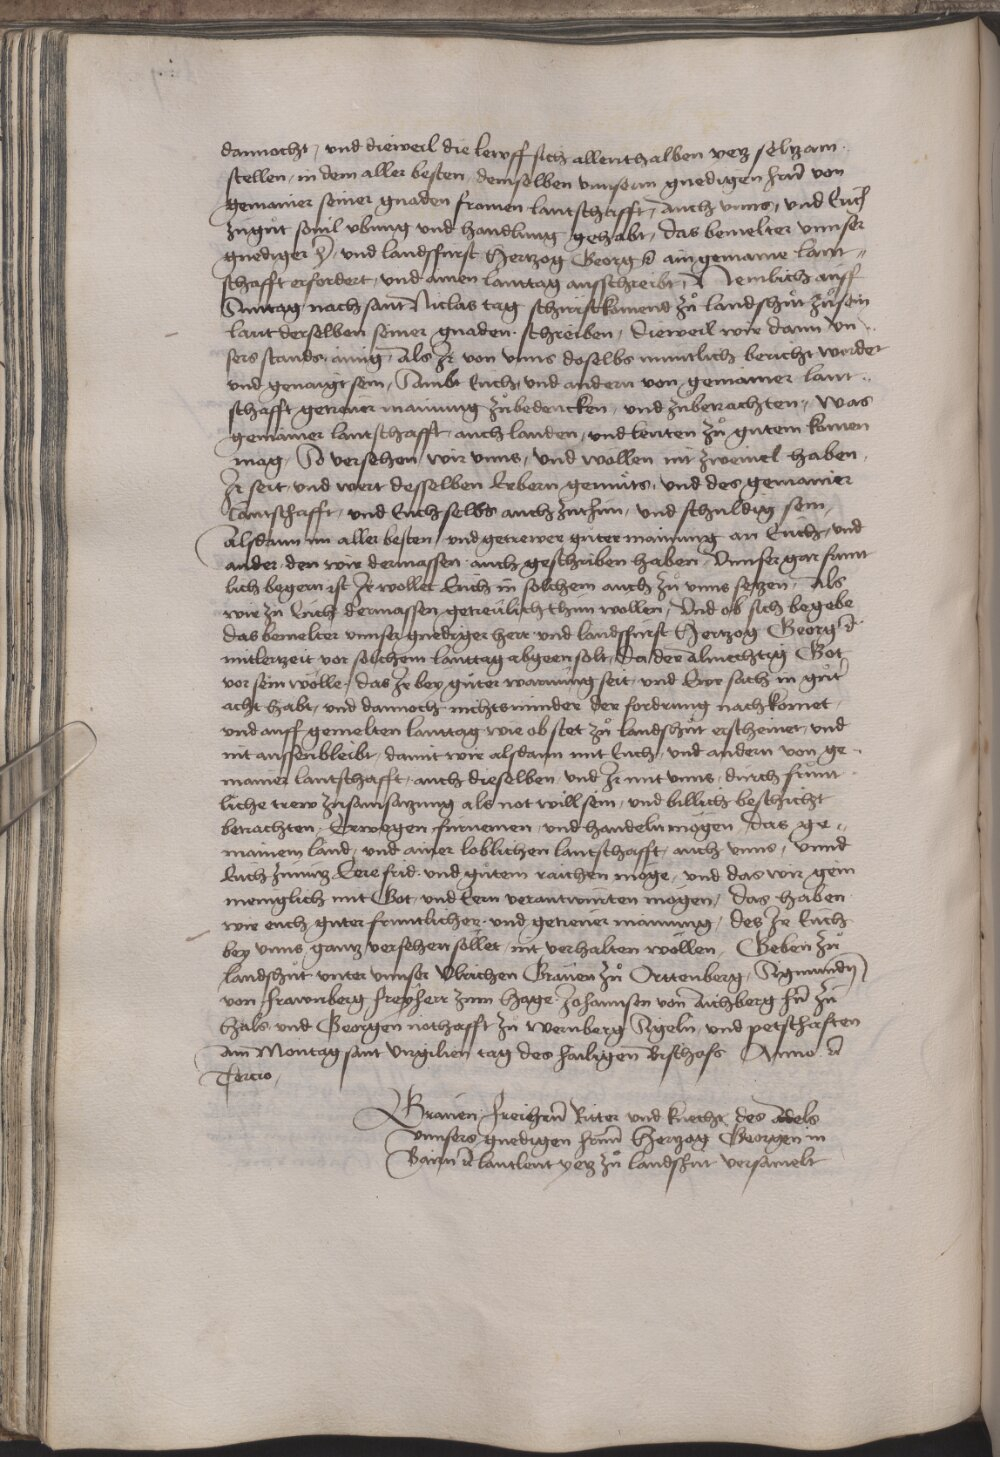 dannocht, und dieweil die lewff sich allenthalben yetz seltzam
stellen, in dem aller besten, demselben unnserm gnedigen hern von
gemainer seiner gnaden fromen lantschafft, auch unns, und Euch
zu gůt sovil ubung und handlung gehabt, das bemelter unnser
gnediger h, und landsfurst Hertzog Georg ain gemaine lant„
schafft erfordert, und ainen lanntag ausschreibt, Nemlich auff
Sunntag nach sant Niclas tag schiristkomend zů landshůt zů sein
laut derselben seiner gnaden schreiben, Dieweil wir dann un„
sers stands ainig, als Ir von unns doselbs muntlich bericht worden
und genaigt sein, Sambt Euch, und andern von gemainer lant„
schafft getreuer mainung zů bedencken, und zů betrachten, was
gemainer lantschafft, auch landen, und leuten zů gutem komen
mag, So versehen wir unns, und wollen nit zweivel haben,
Ir seit, und wert desselben Erbern gemüts, und des gemainer
lantschafft, und Euch selbs auch zuthun, und schuldig sein,
Alsdann im aller besten, und getrewer guter mainung an Euch, und
ander, den wir dermassen auch geschriben haben, Unnser gar frunt
lich begern ist, Ir wollet Euch in solchem auch zů unns setzen, Als
wir zu Euch dermassen getreülich thun wollen, Und ob sich begebe
das bemelter unnser gnediger herr und landsfürst Hertzog Georg
mitlerzeit vor solchem lanttag abgeen solt, Da der Almechtig Got
vor sein wölle, das Ir bey güter warnung seit, und Ewr sach in güt
acht habt, und dannoch nichtsminder der fordrung nachkomet,
und auff gemelten lanttag wie ob stet zů landshůt erscheinet, und
nit aussenbleibt, damit wir alsdann mit Euch, und andern von ge„
mainer lantschafft, auch dieselben, und Ir mit unns, durch frunt
liche trew zusamsatzung als not will sein, und billich beschicht
betrachten, Erwegen, furnemen, und handeln mögen, das ge„
mainem land, und ainer loblichen lantschafft, auch unns, unnd
Euch zu nutz, Eere, frid, und gůtem raichen möge, und das wir gein
meniglich mit Got, und Eern verantwurten mögen, das haben
wir euch guter fruntlicher, und getreuer mainung, des Ir Euch
bey unns gantz versehen söllet, nit verhalten wöllen, Geben zů
landshůt unter unnser Ulrichen Graven zů Orttenberg, Sygmunden
von Frawnberg freyherr zum Hage, Johannsen von Aichberg hern zů
Hals, und Georgen nothafft zů Wernberg Sigeln, und petschaften
am Montag sant Virgilien tag des hailigen Bischofs Anno
Tercio,
Graven, Freihern Ritter und knecht, des Adels
unnsers gnedigen hern Hertzog Georgen in
Bairn lantleut yetz zů landshůt versamelt